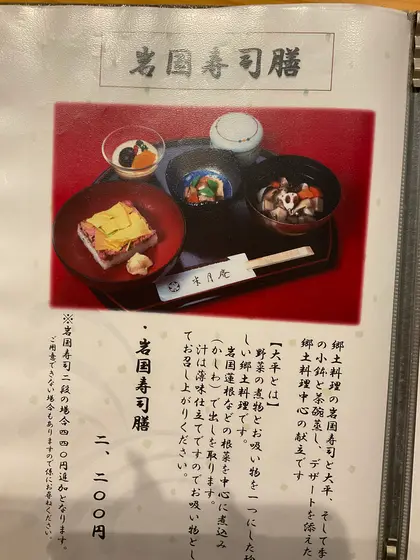 岩国寿司膳
半月庵
郷土料理の岩国寿司と大平、そして季
の小鉢と茶碗蒸し、デザートを添えた
郷土料理中心の献立です
【大平とは】
野菜の煮物とお吸い物を一つにした珍
しい郷土料理です。
岩国蓮根などの根菜を中心に煮込み
(かしわ)で出しを取ります。
汁は薄味仕立てですのでお吸い物とし
てお召し上がりください。
・岩国寿司膳 二、二〇〇円
※岩国寿司二段の場合四四〇円追加となります。
ご用意できない場合もありますので係にお尋ねください。